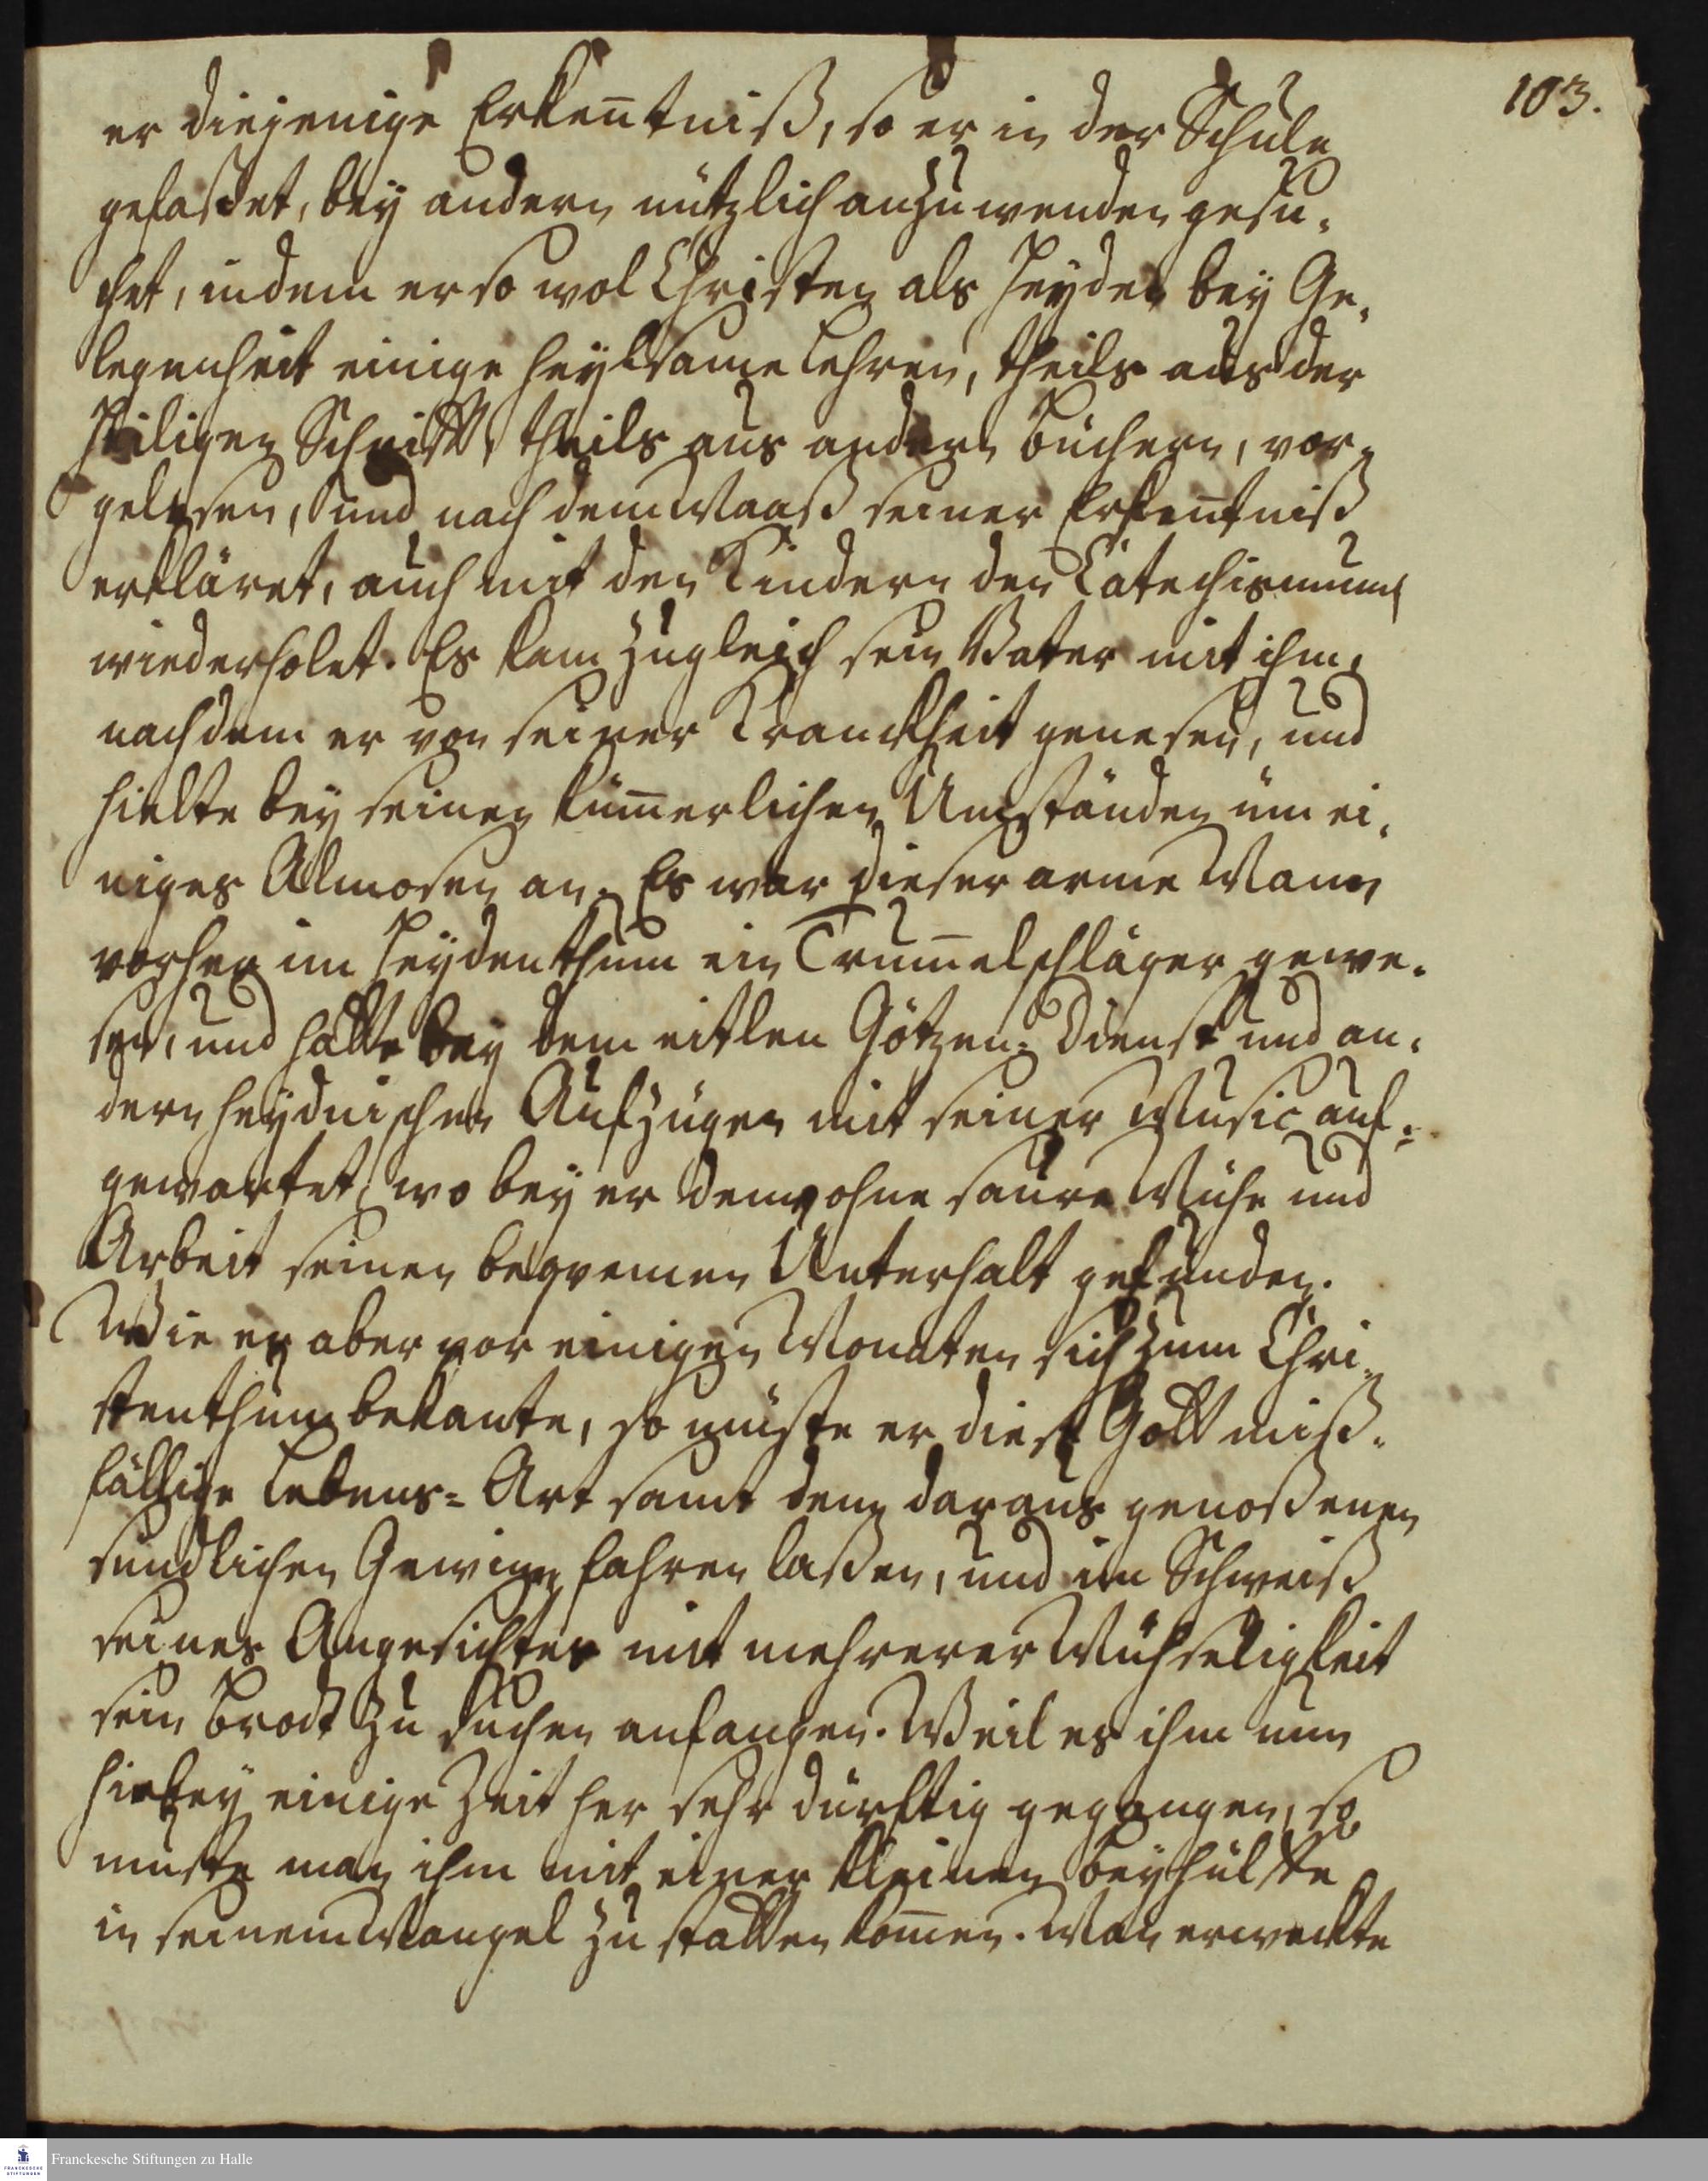 103.
er diejenige Erken̅tniß, so er in der Schule
gefaßet, bey andern nützlich anzuwenden gesu-
chet, indem er so wol Christen als Heyden bey Ge-
legenheit einige heylsame Lehren, theils aus der
Heiligen Schrifft, theils aus andern Büchern, vor-
gelesen, und nach dem Maaß seiner Erken̅tniß
erkläret, auch mit den Kindern den Catechismum
wiederholet. Es kam zugleich sein Vater mit ihm,
nachdem er von seiner Kranckheit genesen, und
hielte bey seinen küm̅erlichen Umständen um ei-
niges Almosen an. Es war dieser arme Mann
vorher im Heydenthum ein Trum̅elschläger gewe-
sen, und hatte bey dem eitlen Götzen-Dienst und an-
dern heydnischen Aufzügen mit seiner Music auf-
gewartet, wobey er denn ohne saure Mühe und
Arbeit seinen beqvemen Unterhalt gefunden.
Wie er aber vor einigen Monaten sich zum Chri-
stenthum bekante, so muste er diese Gott miß-
fällige Lebens-Art samt dem daraus genoßenen
sündlichen Gewinn fahren laßen, und im Schweiß
seines Angesichtes mit mehrerer Mühseligkeit
sein Brodt zu suchen anfangen. Weil es ihm nun
hiebey einige Zeit her sehr dürftig gegangen, so
muste man ihm mit einer kleinen Beyhülffe
in seinem Mangel zu statten kom̅en. Man erweckte
Franckesche Stiftungen zu Halle